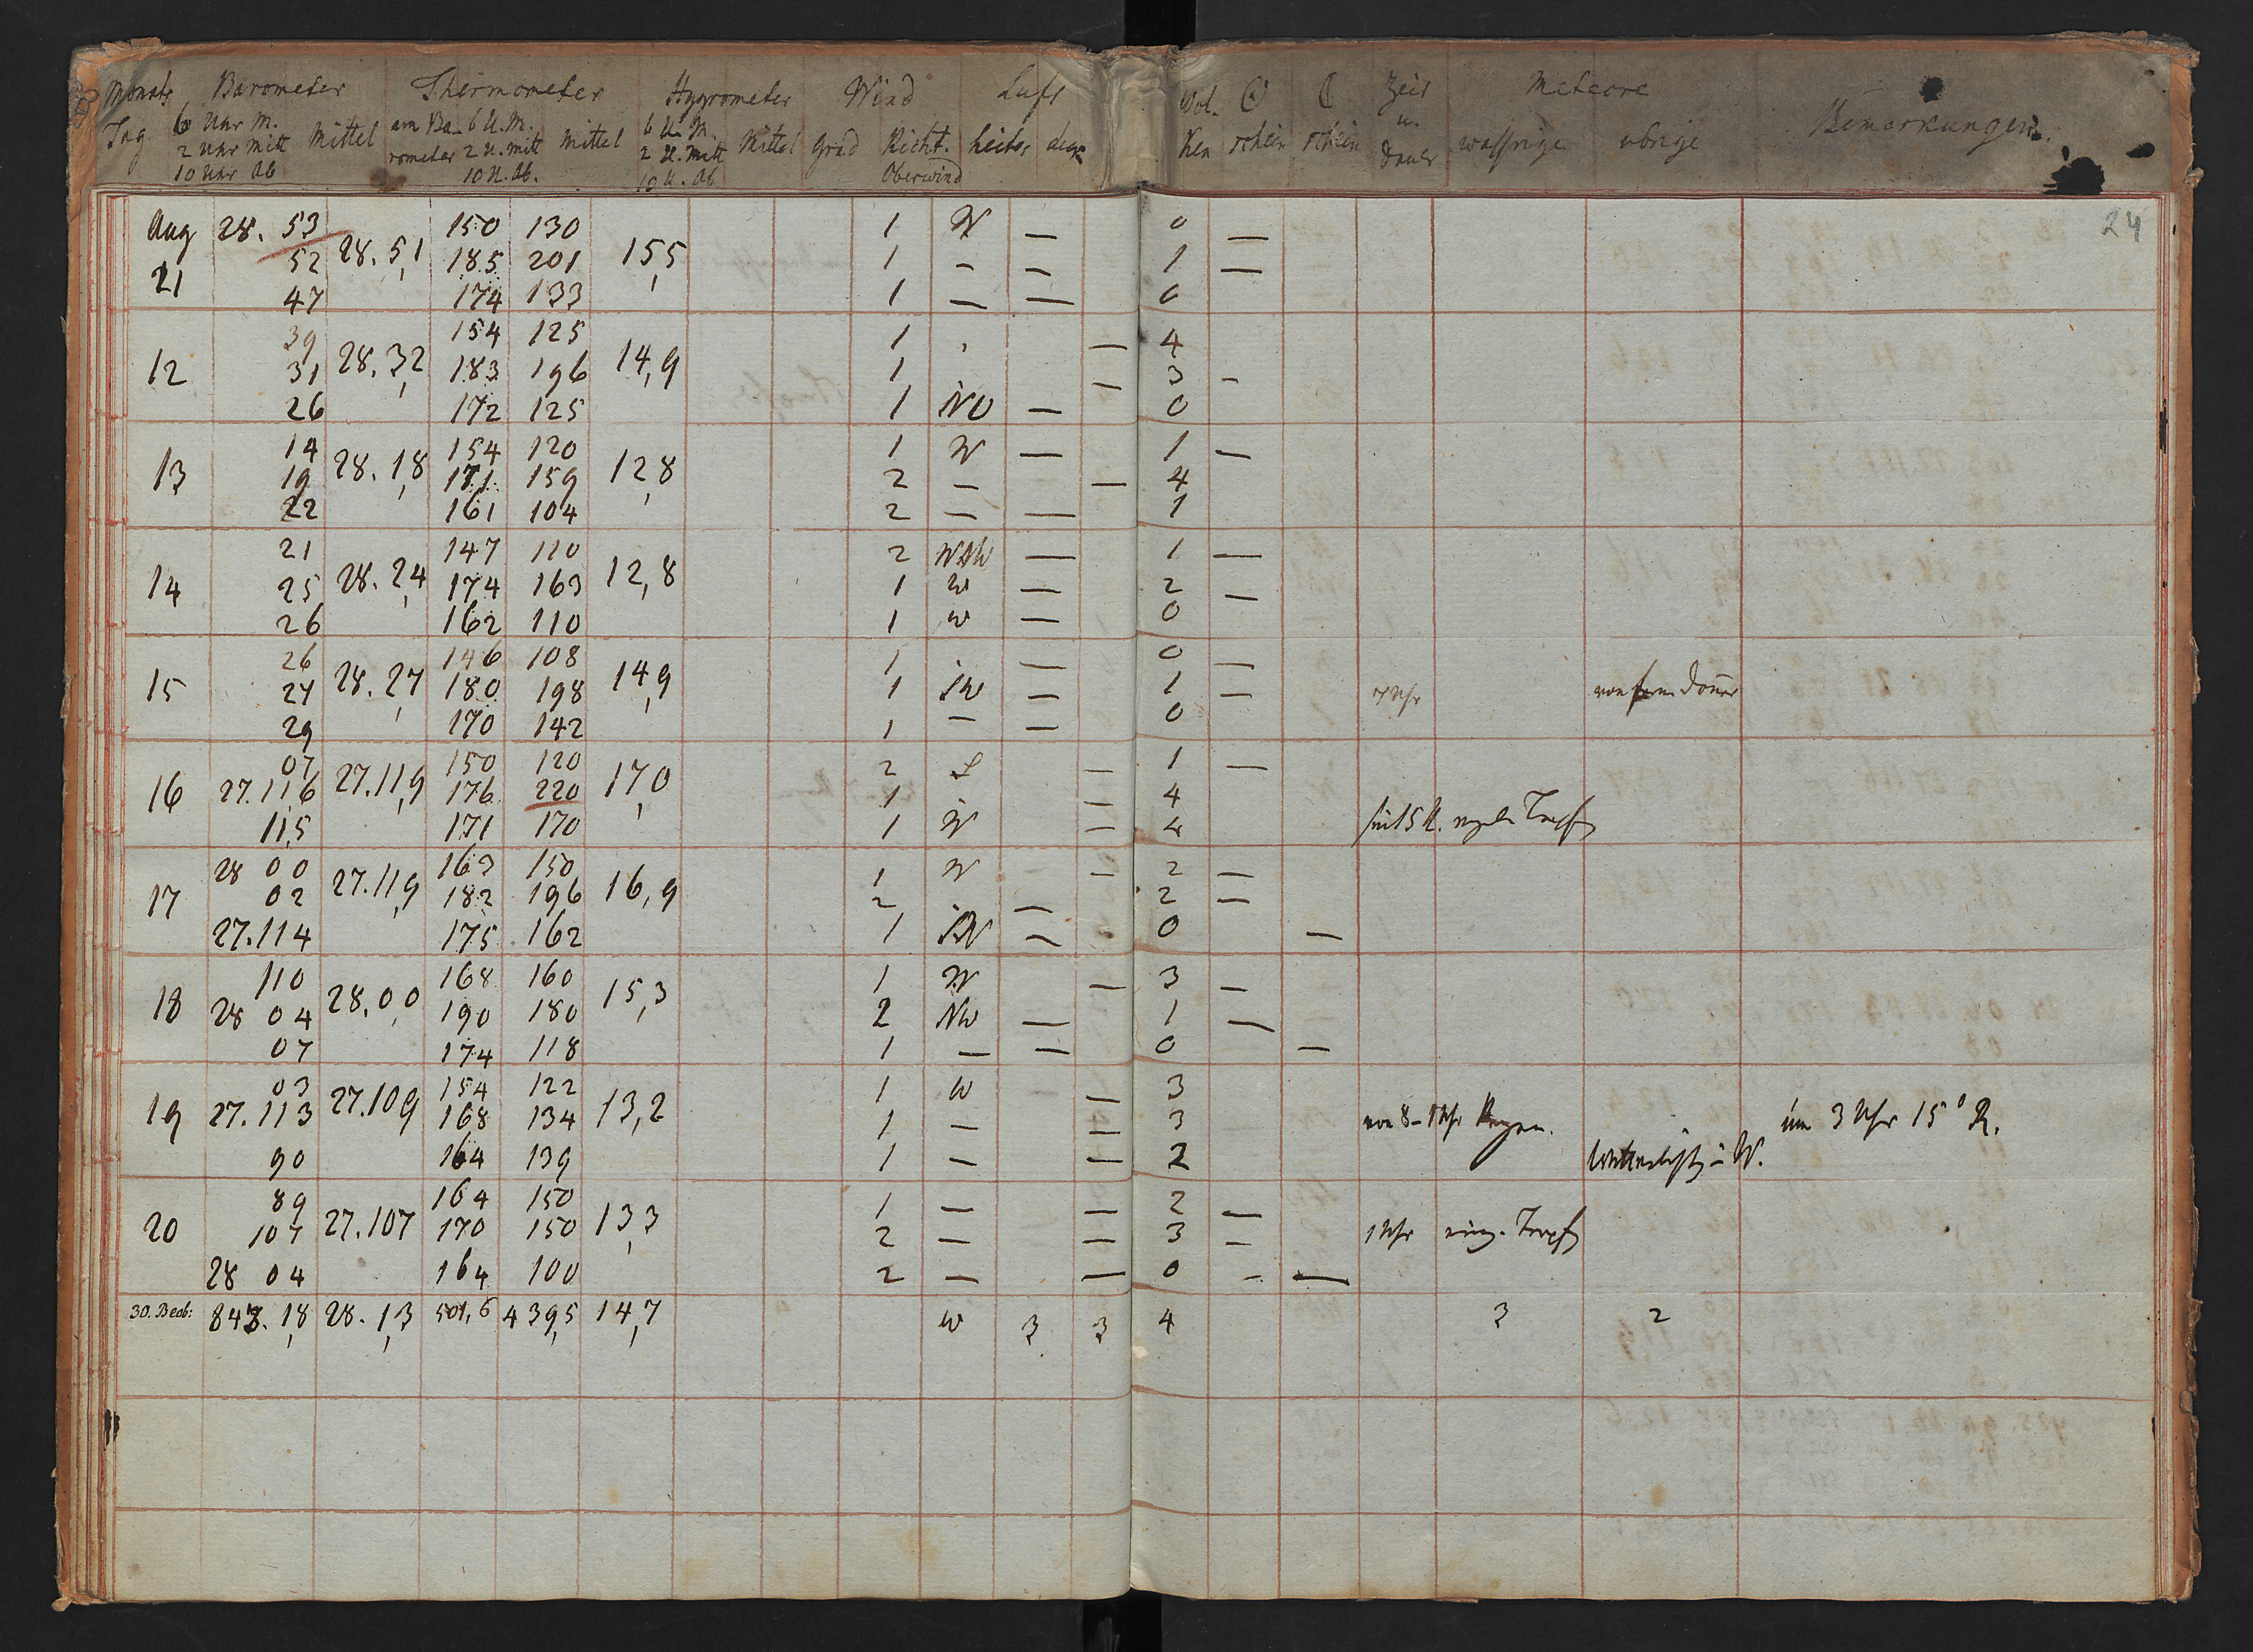 Monats Barometer Thermometer Hygrometer Wind Luft Wol. ☉ ☾ Zeit Meteore Bemerkungen.
Tag 6 Uhr M. Mittel am Ba- 6 U. M. Mittel 6 U. M. Mittel Grad Richt. heiter ken schein schein u. wassrige ubrige
2 Uhr Mitt rometer 2 U. Mitt 2 U. Mitt Dauer
10 Uhr Ab 10 U. Ab. 10 U. Ab Oberwind
24
Aug 28. 53 150 130 1 W — 0 —
21 52 28. 5,1 185 201 15,5 1 – – 1 —
47 174 133 1 — — 0
39 154 125 1 — 4
12 31 28. 3,2 183 196 14,9 1 — 3 –
26 172 125 1 NO — 0
14 154 120 1 W — 1 –
13 19 28. 1,8 171 159 12,8 2 – — 4
22 161 104 2 — — 1
21 147 110 2 — 1 —
14 25 28. 2,4 174 163 12,8 1 W — 2 –
26 162 110 1 W — 0
26 146 108 1 — 0 —
15 27 28. 2,7 180 198 14,9 1 SW — 1 – 7 Uhr von fern Doner
29 170 142 1 – — 0
07 150 120 2 S — 1 —
16 27. 11,6 27. 11,9 176 220 17,0 1 — 4
11,5 171 170 1 W — 4 5 U. Tropf
28 00 163 150 1 W – 2 —
17 02 27. 11,9 182 196 16,9 2 — 2 —
27. 114 175 162 1 — 0 —
110 168 160 1 W — 3 –
18 28 04 28. 0,0 190 180 15,3 2 NW — 1 —
07 174 118 1 — — 0 —
03 154 122 1 W — 3
19 27. 113 27. 109 168 134 13,2 1 – — 3 von 8 – Uhr Regen. um 3 Uhr 15° R.
90 164 139 1 – — 2 W.
89 164 150 1 — — 2 —
20 107 27. 107 170 150 13,3 2 — — 3 – 1 Uhr einz. Tropf
28 04 164 100 2 — — 0 – —
30. Beob: 843. 1,8 28. 1,3 501,6 439,5 14,7 W 3 3 4 3 2